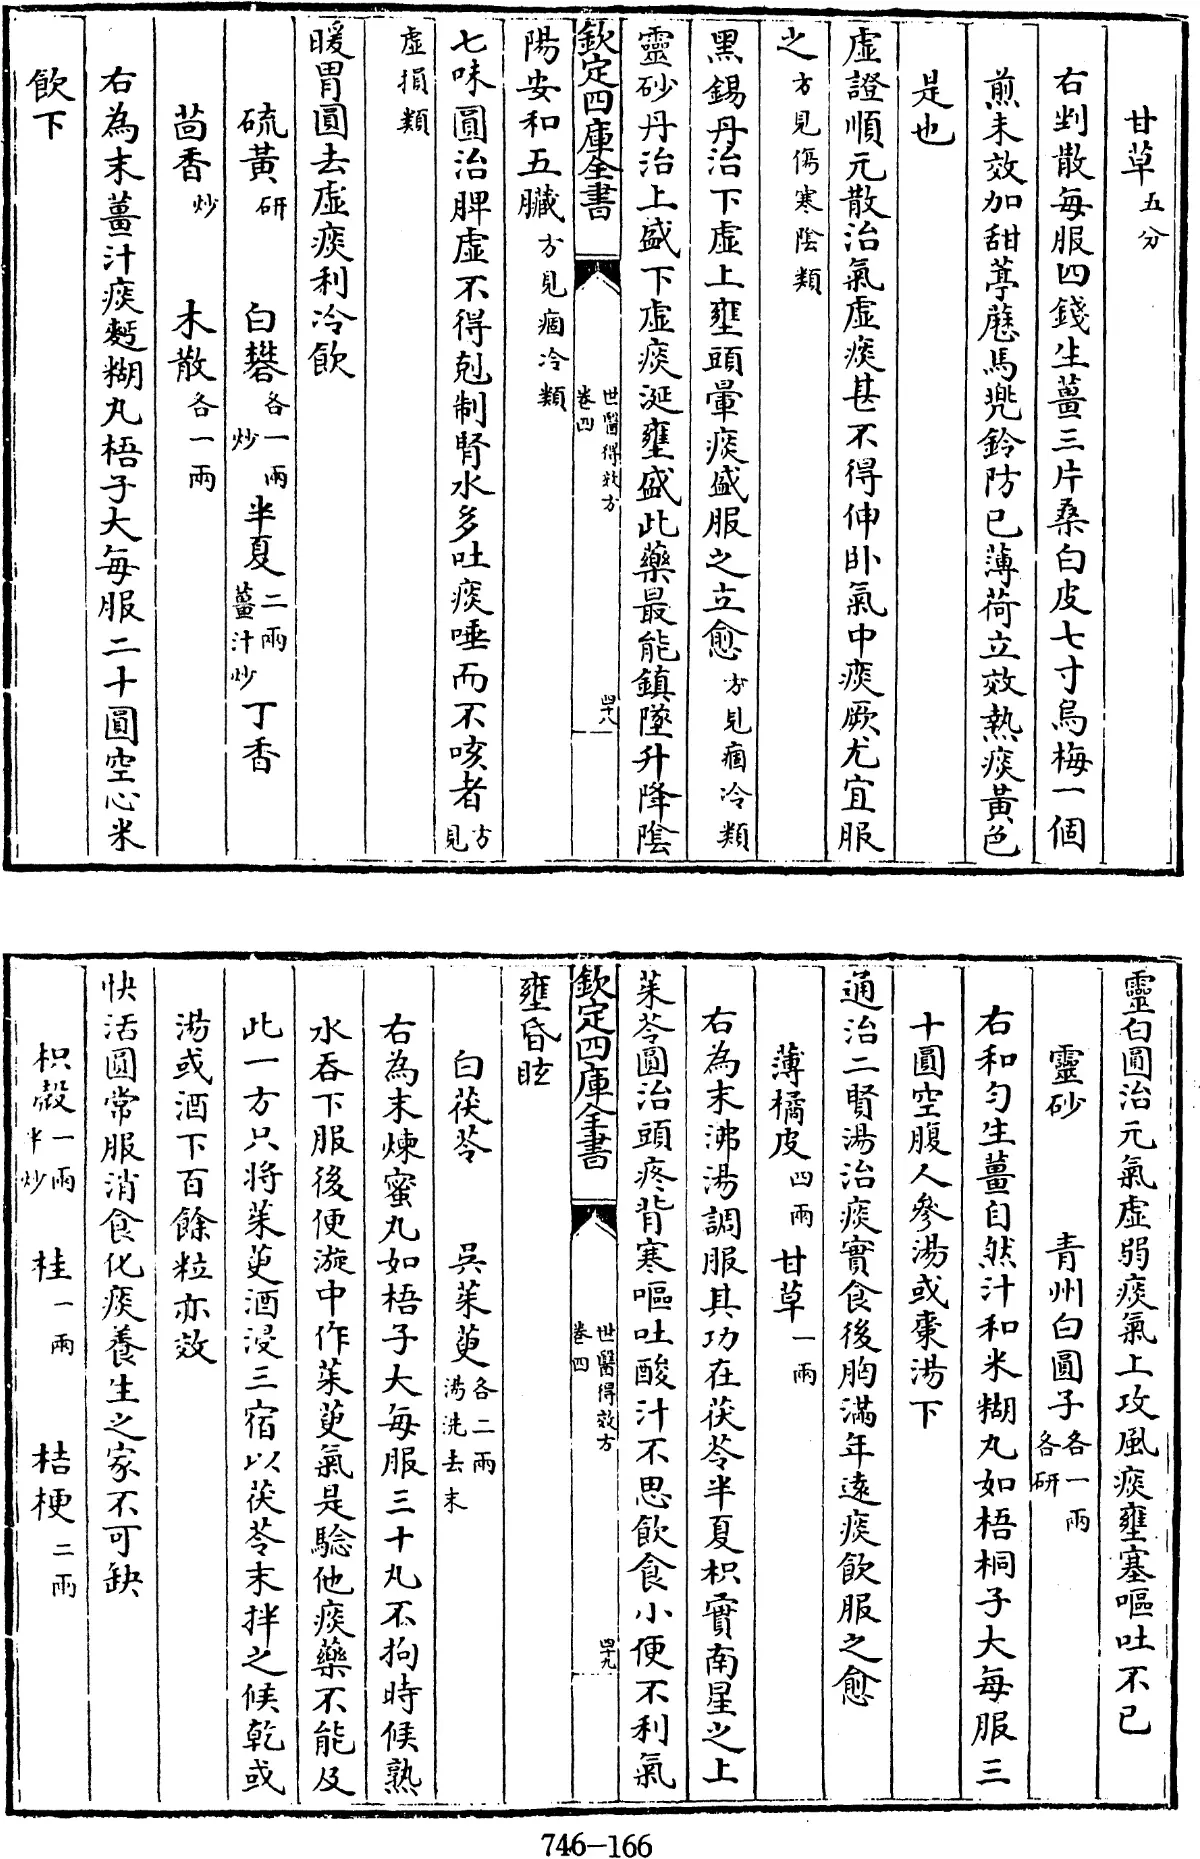 甘草五分
右剉散每服四錢生薑三片桑白皮七寸烏梅一個
煎未效加甜葶藶馬兜鈴防已薄荷立效熱痰黃色
是也
虛證順元散治氣虛痰甚不得伸臥氣中痰厥尤宜服
之方見傷寒陰類
黑錫丹治下虛上壅頭暈痰盛服之立愈方見痼冷類
靈砂丹治上盛下虛痰涎壅盛此藥最能鎮墜升降陰
欽定四庫全書 世醫得效方 卷四 四十八
陽安和五臟方見痼冷類
七味圓治脾虛不得剋制腎水多吐痰唾而不咳者方見
虛損類
暖胃圓去虛痰利冷飲
硫黃研 白礬各一兩炒 半夏二兩薑汁炒 丁香
茴香炒 木散各一兩
右為末薑汁痰麪糊丸梧子大每服二十圓空心米
飲下
靈白圓治元氣虛弱痰氣上攻風痰壅塞嘔吐不已
靈砂 青州白圓子各一兩各研
右和勻生薑自然汁和米糊丸如梧桐子大每服三
十圓空腹人參湯或棗湯下
通治二賢湯治痰實食後胸滿年遠痰飲服之愈
薄橘皮四兩 甘草一兩
右為末沸湯調服其功在茯苓半夏枳實南星之上
茱苓圓治頭疼背寒嘔吐酸汁不思飲食小便不利氣
欽定四庫全書 世醫得效方 卷四 四十九
壅昏眩
白茯苓 吳茱萸各二兩湯洗去末
右為末煉蜜丸如梧子大每服三十丸不拘時候熟
水吞下服後便漩中作茱萸氣是驗他痰藥不能及
此一方只將茱萸酒浸三宿以茯苓末拌之候乾或
湯或酒下百餘粒亦效
快活圓常服消食化痰養生之家不可缺
枳殼一兩半炒 桂一兩 桔梗二兩
746-166